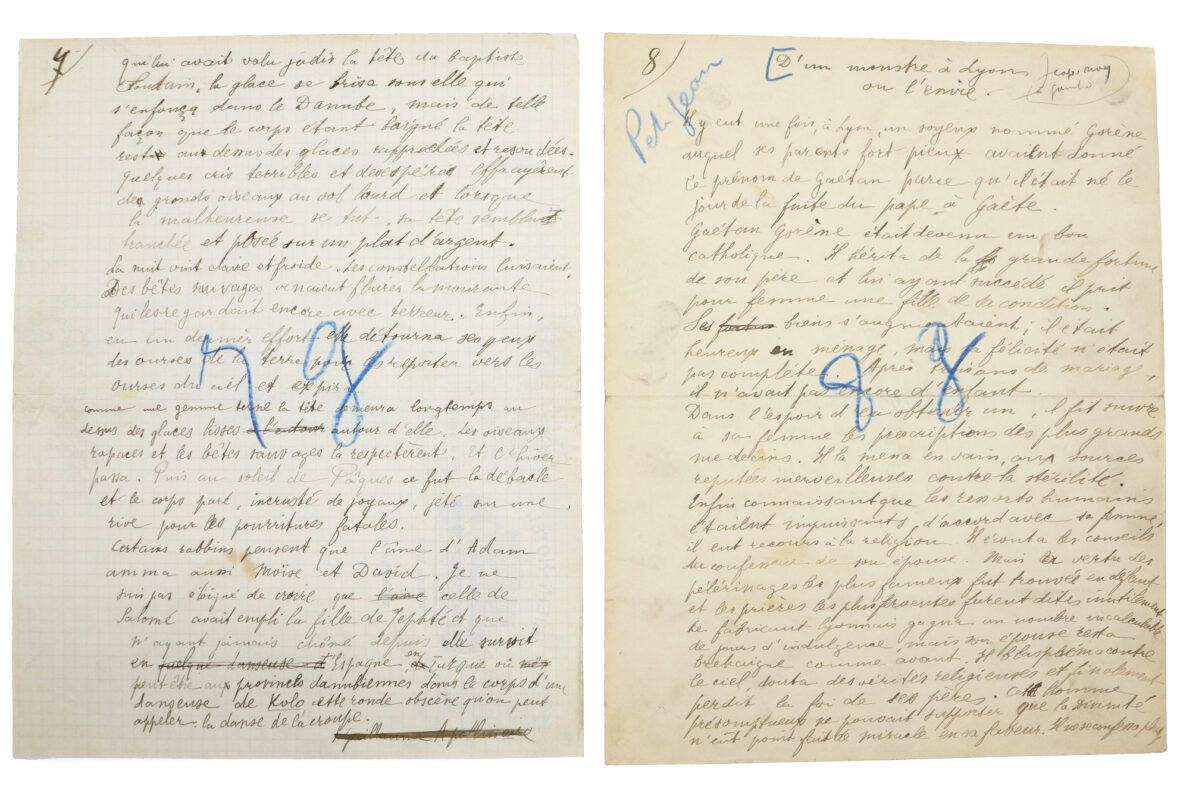 7)
qui lui avait valu jadis la tête du baptiste
Soudain, la glace se brisa sous elle qui
s'enfonça dans le Danube, mais de telle
façon que le corps étant baigné la tête
resta au dessus des glaces rapprochées et ressoudées.
Quelques cris terribles et désespérés effrayèrent
de grands oiseaux au vol lourd et lorsque
la malheureuse se tut, sa tête semblait
tranchée et posée sur un plat d'argent.
La nuit vint claire et froide. Les constellations luisaient.
Des bêtes sauvages venaient flairer la mourante
qui les regardait encore avec terreur. Enfin,
en un dernier effort elle détourna ses yeux
des ourses de la terre pour les reporter vers les
ourses du ciel et expira
comme une gemme terne la tête demeura longtemps au
dessus des glaces lisses à l'entour autour d'elle. Les oiseaux
rapaces et les bêtes sauvages la respectèrent. Et l'hiver
passa. Puis au soleil de Pâques ce fut la débâcle
et le corps paré, incrusté de joyaux, jeté sur une
rive pour les pourritures fatales.
Certains rabbins pensent que l'âme d'Adam
amma aussi Moïse et David. Je ne
suis pas éloigné de croire que l'âme celle de
Salomé avait empli la fille de Jephté et que
n'ayant jamais chômé depuis elle survit
en quelque danseuse d'Espagne, en Turquie où
peut être aux provinces danubiennes dans le corps d'une
danseuse de Kolo cette ronde obscène qu'on peut
appeler la danse de la croupe.
Guillaume Apollinaire
78
8)
Petit Jean
D'un monstre à Lyon
ou l'envie.
à gauche
Il y eut une fois, à Lyon, un soyeux nommé Gorène
auquel ses parents fort pieux avaient donné
le prénom de Gaétan parce qu'il était né le
jour de la fuite du pape à Gaète.
Gaétan Gorène était devenu un bon
catholique. Il hérita de la grande fortune
de son père et lui ayant succédé il prit
pour femme une fille de sa condition.
Ses biens s'augmentaient; il était
heureux en ménage, mais sa félicité n'était
pas complète. Après trois ans de mariage,
il n'avait pas encore d'enfant.
Dans l'espoir d'en obtenir un, il fit suivre
à sa femme les prescriptions des plus grands
médecins. Il la mena en vain, aux sources
réputées merveilleuses contre la stérilité.
Enfin connaissant que les ressorts humains
étaient impuissants, d'accord avec sa femme,
il eut recours à la religion. Il écouta les conseils
du confesseur de son épouse. Mais la vertu des
pèlerinages les plus fameux fut trouvée en défaut
et les prières les plus ferventes furent dites inutilement
Le fabricant lyonnais gagna un nombre incalculable
de jours d'indulgence, mais son épouse resta
bréhaigne comme avant. Il blasphéma contre
le ciel, douta des vérités religieuses et finalement
perdit la foi de ses pères. Cet homme
présomptueux ne pouvait supporter que la divinité
n'eût point fait de miracle en sa faveur. Il ne se confessa plus
98